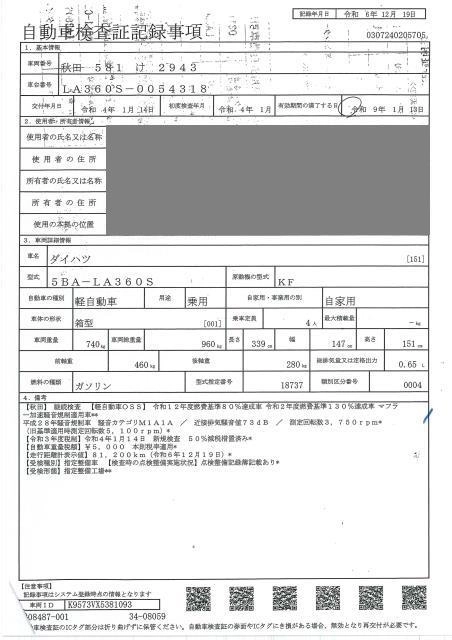 記録年月日 令和 6年12月 19日
自動車検査証記録事項
0307240205705
1．基本情報
車両番号 秋田 581 け 2943
車台番号 LA360S-0054318
交付年月日 令和 4年 1月 14日 初度検査年月 令和 4年 1月 有効期間の満了する日 令和 9年 1月 13日
2．使用者・所有者情報
使用者の氏名又は名称
使用者の住所
所有者の氏名又は名称
所有者の住所
使用の本拠の位置
3．車両詳細情報
車名 ダイハツ [151]
型式 5BA-LA360S 原動機の型式 KF
自動車の種別 軽自動車 用途 乗用 自家用・事業用の別 自家用
車体の形状 箱型 [001] 乗車定員 4人 最大積載量 －kg
車両重量 740kg 車両総重量 960kg 長さ 339cm 幅 147cm 高さ 151cm
前軸重 460kg 後軸重 280kg 総排気量又は定格出力 0.65 L
燃料の種類 ガソリン 型式指定番号 18737 類別区分番号 0004
4．備考
【秋田】 継続検査 【軽自動車OSS】 令和12年度燃費基準80％達成車 令和2年度燃費基準130％達成車 マフラ
ー加速騒音規制適用車**
平成28年騒音規制車 騒音カテゴリM1A1A ／ 近接排気騒音値73dB ／ 測定回転数3，750rpm*
（旧基準適用時測定回転数5，100rpm）*
【令和3年度税制】令和4年1月14日 新規検査 50％減税措置済み*
【自動車重量税額】￥5，000 本則税率適用*
【走行距離計表示値】81，200km（令和6年12月19日）*
【受検種別】指定整備車 【検査時の点検整備実施状況】点検整備記録簿記載あり*
【受検形態】指定整備工場**
【注意事項】
記録事項はシステム登録時点の情報となります
車両ID K9573VX5381093
08487-001 34-08059
車検査証のICタグ部分は折り曲げずに保管ください。自動車検査証の券面やICタグにき損がある場合、無効となり再交付が必要です。